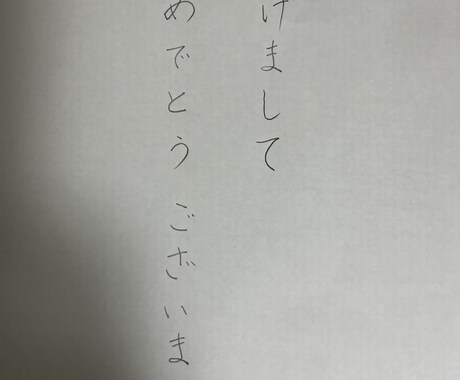 けまして
めでとうございま